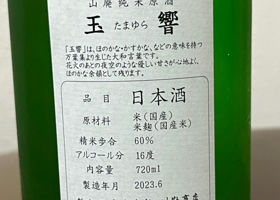 山廃純米原酒
玉響
たまゆら
「玉響」は、ほのかな・かすかな、などの意味を持つ
万葉集より生じた大和言葉です。
花火のあとの夜空のような優しい甘さが心地よく、
ほのかな余韻として残ります。
品目 日本酒
原材料 米(国産)
米麹(国産米)
精米歩合 60%
アルコール分 16度
内容量 720ml
製造年月 2023.6